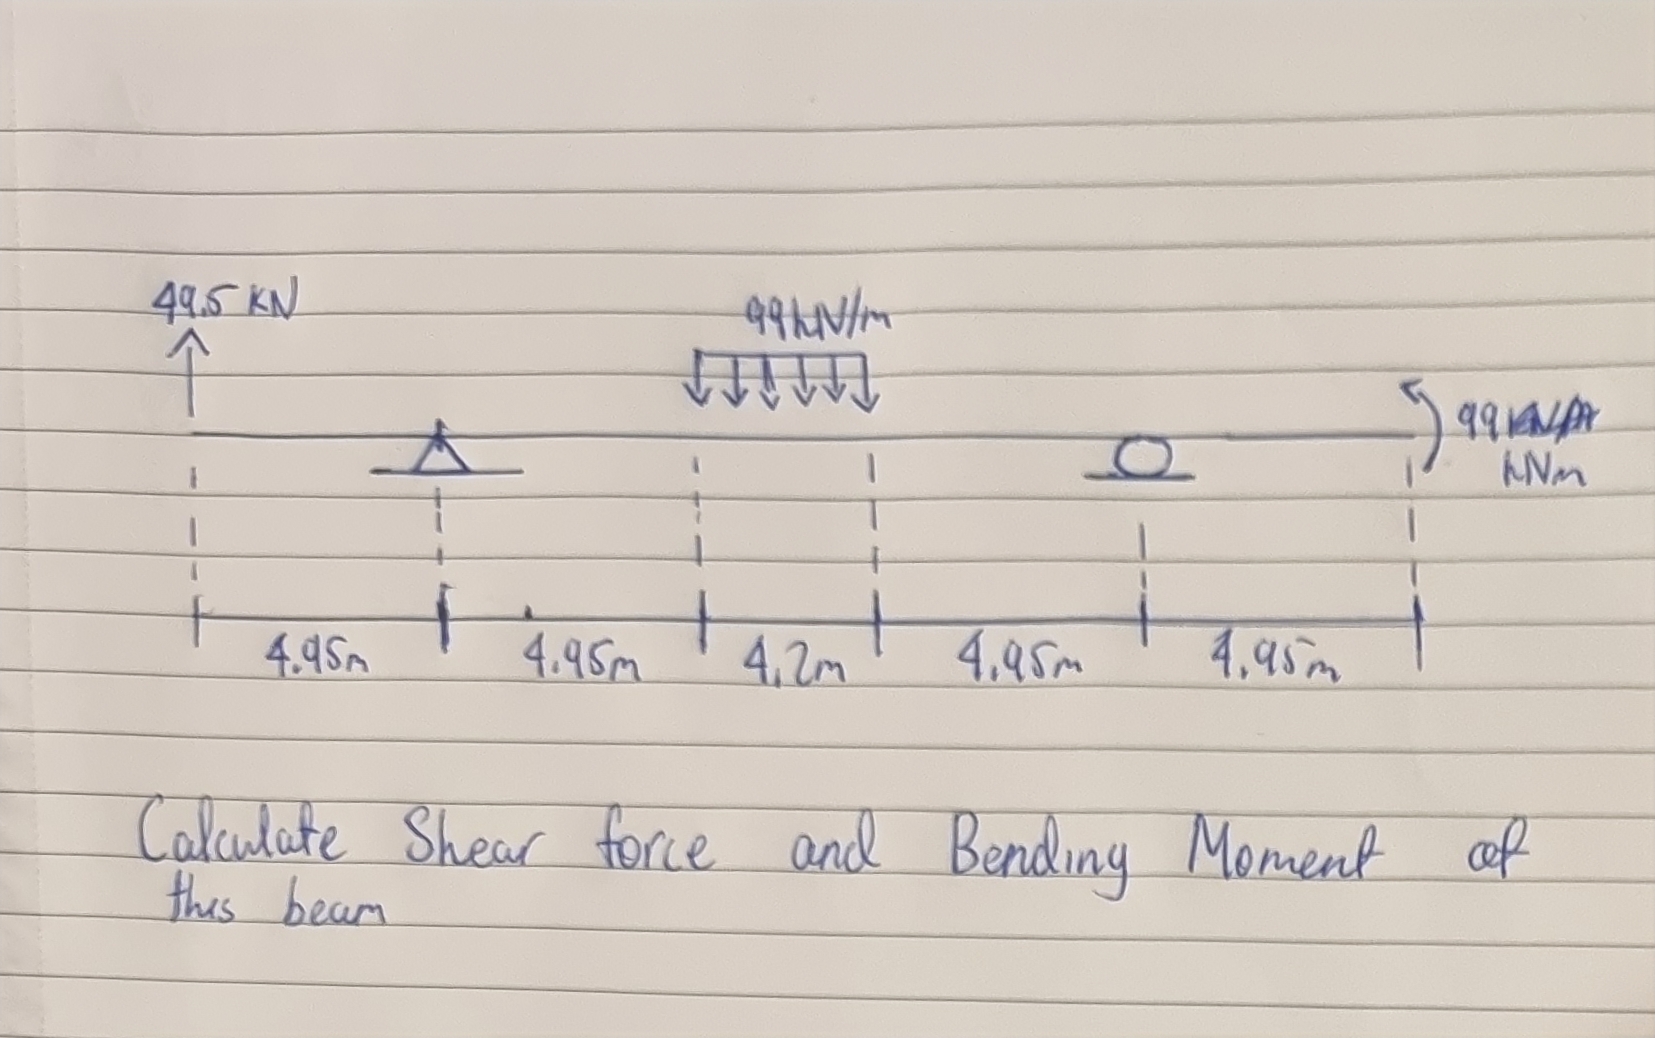 49.5 KN
99kN/m
99
kNm
4.95m 4.95m 4.2m 4.95m 4.95m
Calculate Shear force and Bending Moment of
this beam